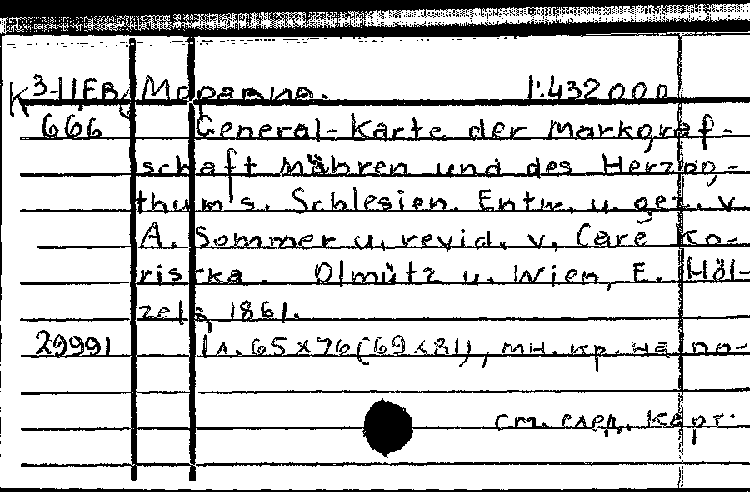 К 3-11,ЕВ/ Моравия. 1:432000
666 General-Karte der Markgraf-
schaft Mähren und des Herzog-
thum's. Schlesien. Entw. u. gez. v.
A. Sommer u. revid. v. Caré Ko-
ristka. Olmütz u. Wien, E. Höl-
zels, 1861.
29991 1 л. 65 x 76 (69 x 81), мн. кр. на по-
см. след. карт.